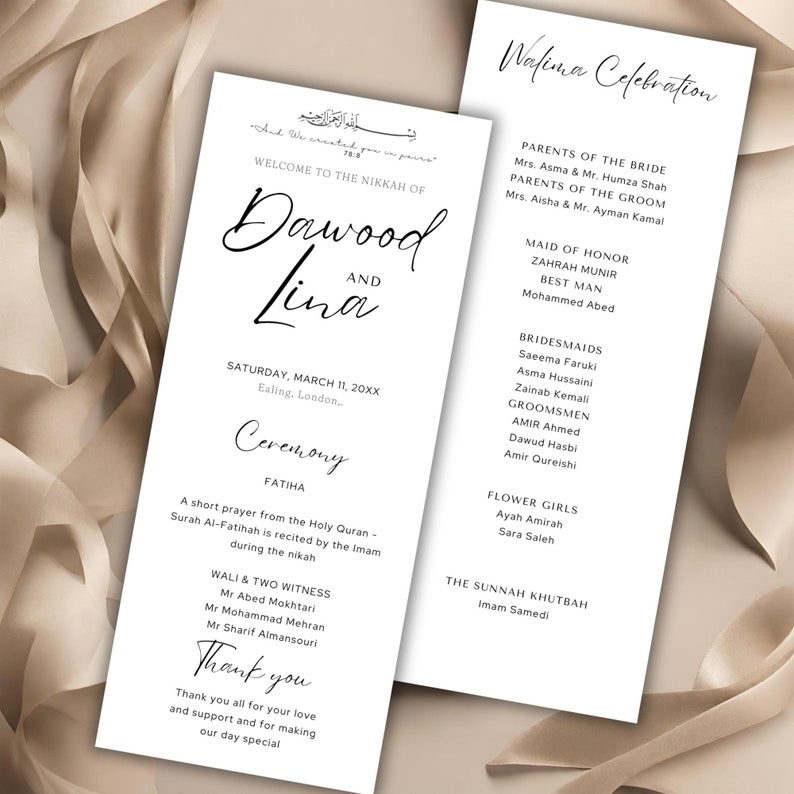 بسم الله الرحمن الرحيم
"And We created you in pairs"
78:8
WELCOME TO THE NIKKAH OF
Dawood
AND
Lina
SATURDAY, MARCH 11, 20XX
Ealing, London,.
Ceremony
FATIHA
A short prayer from the Holy Quran -
Surah Al-Fatihah is recited by the Imam
during the nikah
WALI & TWO WITNESS
Mr Abed Mokhtari
Mr Mohammad Mehran
Mr Sharif Almansouri
Thank you
Thank you all for your love
and support and for making
our day special
Walima Celebration
PARENTS OF THE BRIDE
Mrs. Asma & Mr. Humza Shah
PARENTS OF THE GROOM
Mrs. Aisha & Mr. Ayman Kamal
MAID OF HONOR
ZAHRAH MUNIR
BEST MAN
Mohammed Abed
BRIDESMAIDS
Saeema Faruki
Asma Hussaini
Zainab Kemali
GROOMSMEN
AMIR Ahmed
Dawud Hasbi
Amir Qureishi
FLOWER GIRLS
Ayah Amirah
Sara Saleh
THE SUNNAH KHUTBAH
Imam Samedi